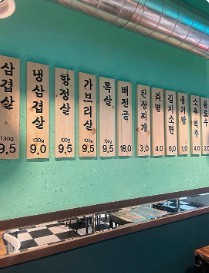 삼겹살 130g 9,5
냉삼겹살 130g 9,0
항정살 120g 9,5
가브리살 120g 9,5
목살 9,5
버전골 18,0
된장찌개 3,0
라면 4,0
김치소면 6,0
공기밥 1,0
소주 맥주 4,0
음료수 2,0